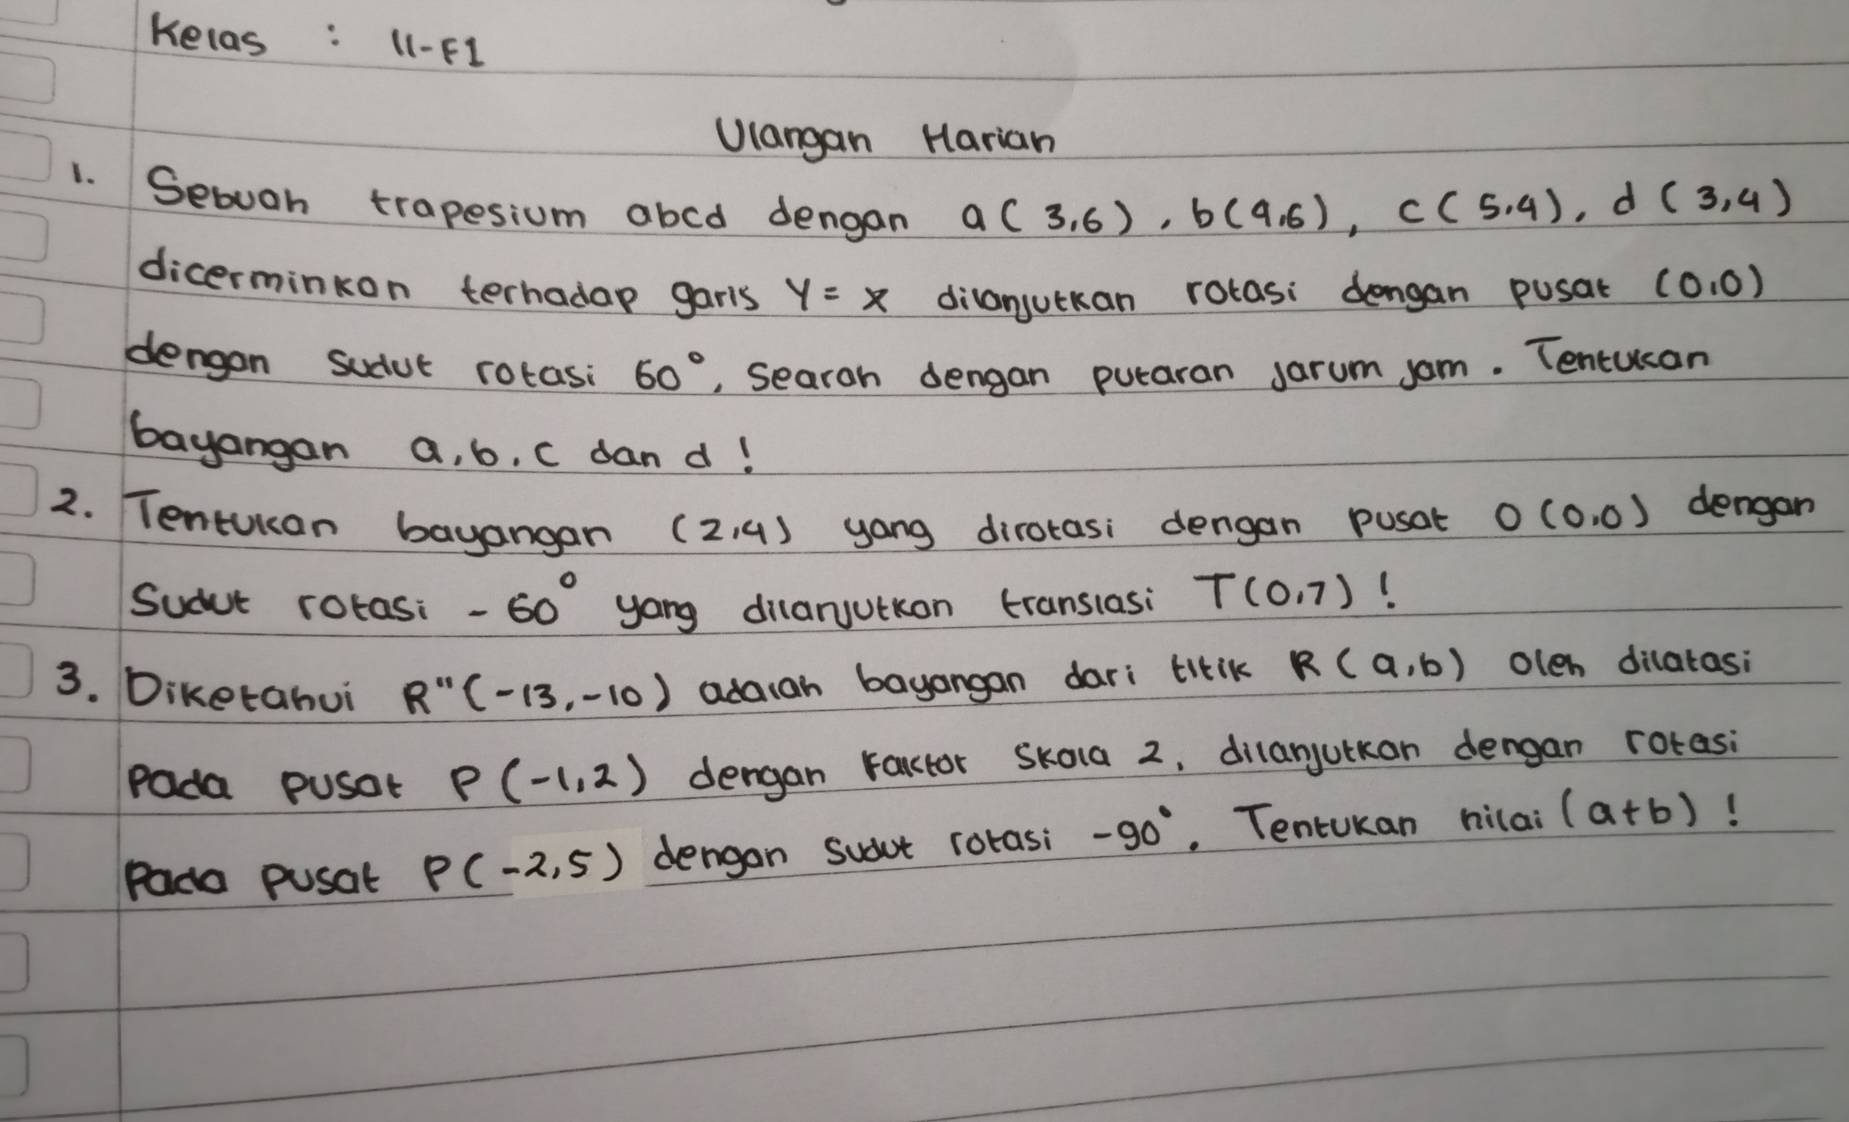 Kelas : 11-F1
Ulangan Harian
1. Sebuah trapesium abcd dengan a (3,6), b(4,6), c(5,4), d (3,4)
dicerminkan terhadap garis Y = x dilanjutkan rotasi dengan pusat (0,0)
dengan sudut rotasi 60°, searah dengan putaran jarum jam. Tentukan
bayangan a, b, c dan d !
2. Tentukan bayangan (2,4) yang dirotasi dengan pusat O (0,0) dengan
sudut rotasi -60° yang dilanjutkan translasi T(0,7) !
3. Diketahui R"(-13,-10) adalah bayangan dari titik R (a,b) oleh dilatasi
pada pusat P(-1,2) dengan faktor skala 2, dilanjutkan dengan rotasi
pada pusat P(-2,5) dengan sudut rotasi -90°. Tentukan nilai (a+b) !